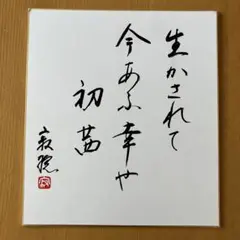 生かされて
今あふ幸や
初茜
寂聴